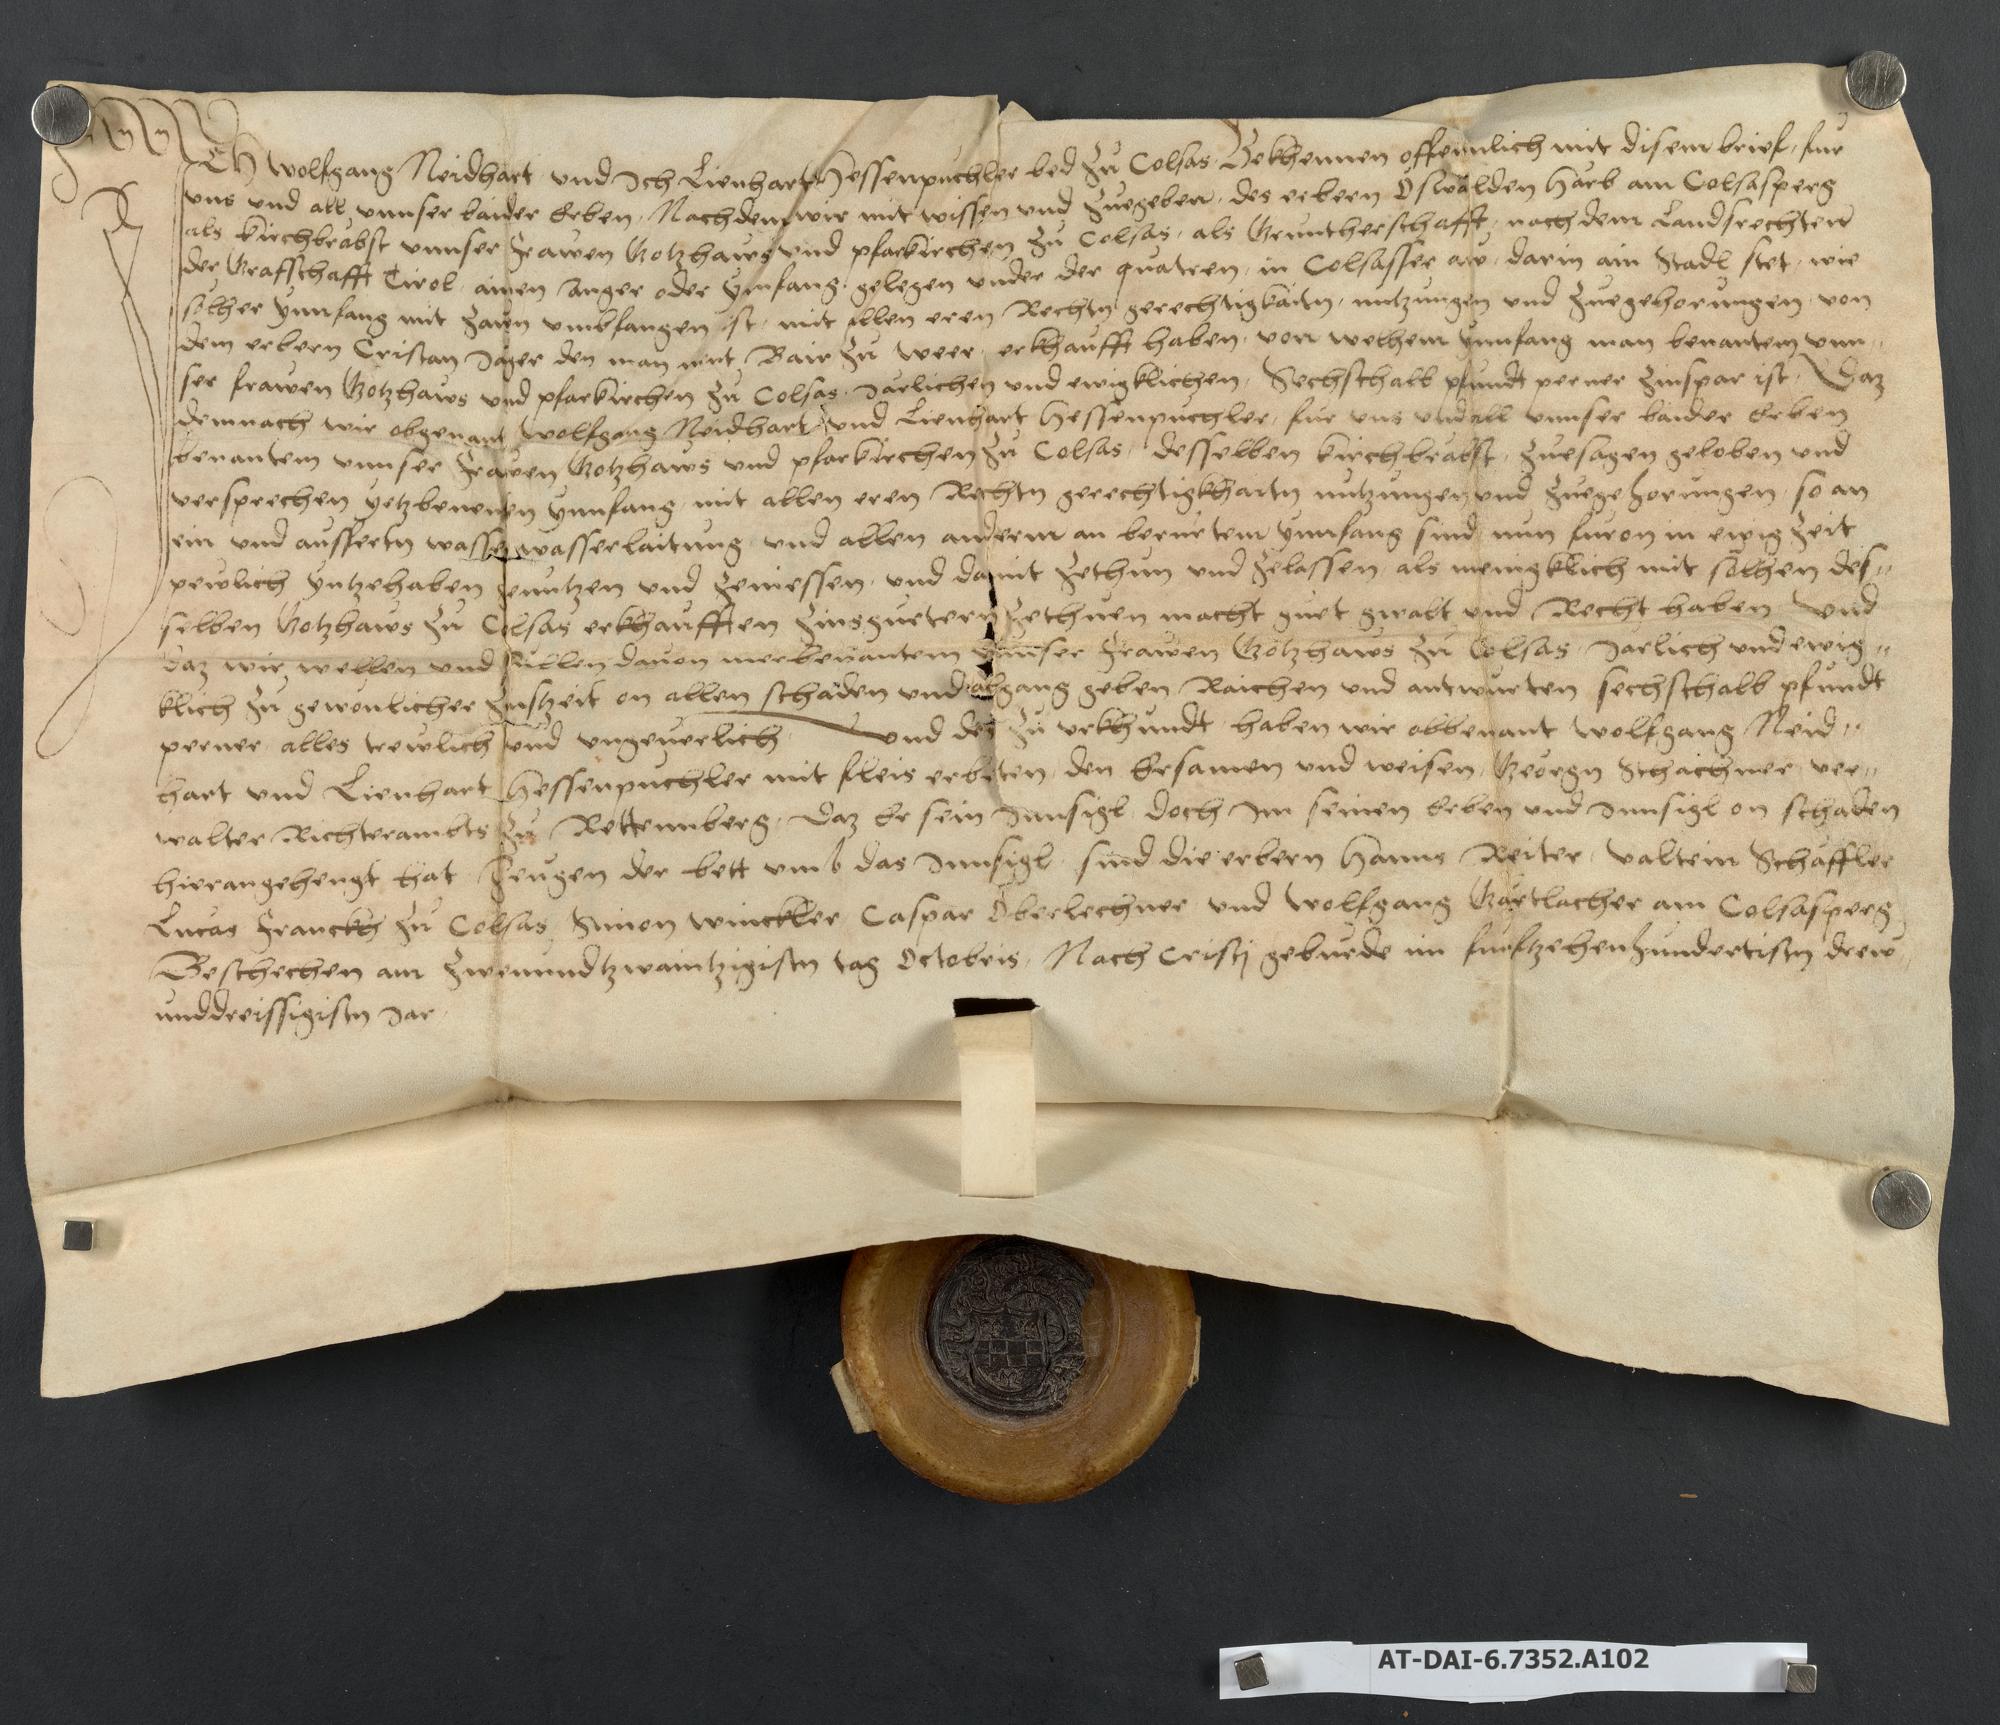 Ich Wolfgang Neidhart und Ich Lienhart Hessenpuchler bed zů Colsas Bekhennen offennlich mit disem brief, fur
uns und all unnser baider Erben, Nachdem wir mit wissen und zuegeben, des erbern Oswalden Harb am Colsasperg
als kirchbrabst unnser Frawen Gotzhaws und pfarkirchen zů Colsas, als Gruntherschafft, nach dem Landsrechten
der Grafschafft Tirol, ainen Anger oder Ynnfang gelegen under der quatren, in Colsasser aw, darin ain Stadl stet, wie
sölher ynnfang mit Zawn umbfangen ist, mit allen eren Rechtn gerechtigkaitn, nutzungen und zuegehorungen, von
dem erbern Cristan Jäger den man nent Bair zů Weer, erkhaufft haben, von welhem ynnfang man benantem unn„
ser frawen Gotzhaws und pfarkirchen zů Colsas Järlichen und ewigklichen, Sechsthalb pfundt perner Zinspar ist, Daz
demnach wir obgenant Wolfgang Neidhart und Lienhart Hessenpuchler, fur uns und all unnser baider Erben
benantem unnser Frawen Gotzhaws und pfarkirchen zů Colsas, desselben kirchbrabst, zuesagen geloben und
versprechen yetzbenenten ynnfang mit allen eren Rechtn gerechtigkhaitn nutzungen und zuegehorungen, so an
ein und ausfertn wasser wasserlaitung und allen anderm an beruertem ynnfang sind nun furon in ewig Zeit
pewlich ynzehaben zenutzen und zeniessen, und damit zethun und zelassen, als menigklich mit sölhen des„
selben Gotzhaws zů Colsas erkhaufften Zinsguetern zethuen macht guet gwalt und Recht haben Und
Daz wir wellen und sullen davon merbenantem unnser Frawen Gotzhaws zů Colsas Järlich und ewig„
klich zů gewonlicher Zinstzeit on allen schaden und abgang geben Raichen und antwurten sechsthalb pfundt
perner alles trewlich und ungeverlich Und des zů urkhundt haben wir obbenant Wolfgang Neid„
hart und Lienhart Hessenpuchler mit fleis erbeten den Ersamen und weisen Georgn Schachner ver„
walter Richterambts zů Rettennberg, Daz Er sein Innsigl doch Im seinen Erben und Innsigl on schaden
hieran gehengt hat Zeugen der bett umb das Innsigl sind die erbern Hanns Reiter, Valtein Schäffler
Lucas Franckh zů Colsas, Simon Winckler Caspar Oberlechner und Wolfgang Gartlacher am Colsasperg
Beschechen am Zwenundtzwaintzigistn tag Octobris, Nach Cristj geburde im funftzehenhundertistn drew
unddreissigistn Jar
AT-DAI-6.7352.A102